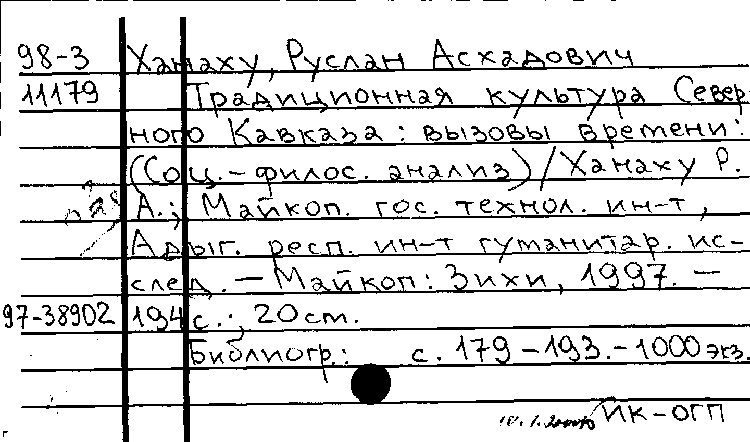 98-3 Ханаху, Руслан Асхадович
11179 Традиционная культура Север-
ного Кавказа : вызовы времени :
(Соц.-филос. анализ) / Ханаху Р.
А.; Майкоп. гос. технол. ин-т,
Адыг. респ. ин-т гуманитар. ис-
след. — Майкоп : Зихи, 1997. —
97-38902 194 с.; 20 cm.
Библиогр.: с. 179-193. - 1000 экз.
ИК-ОГП